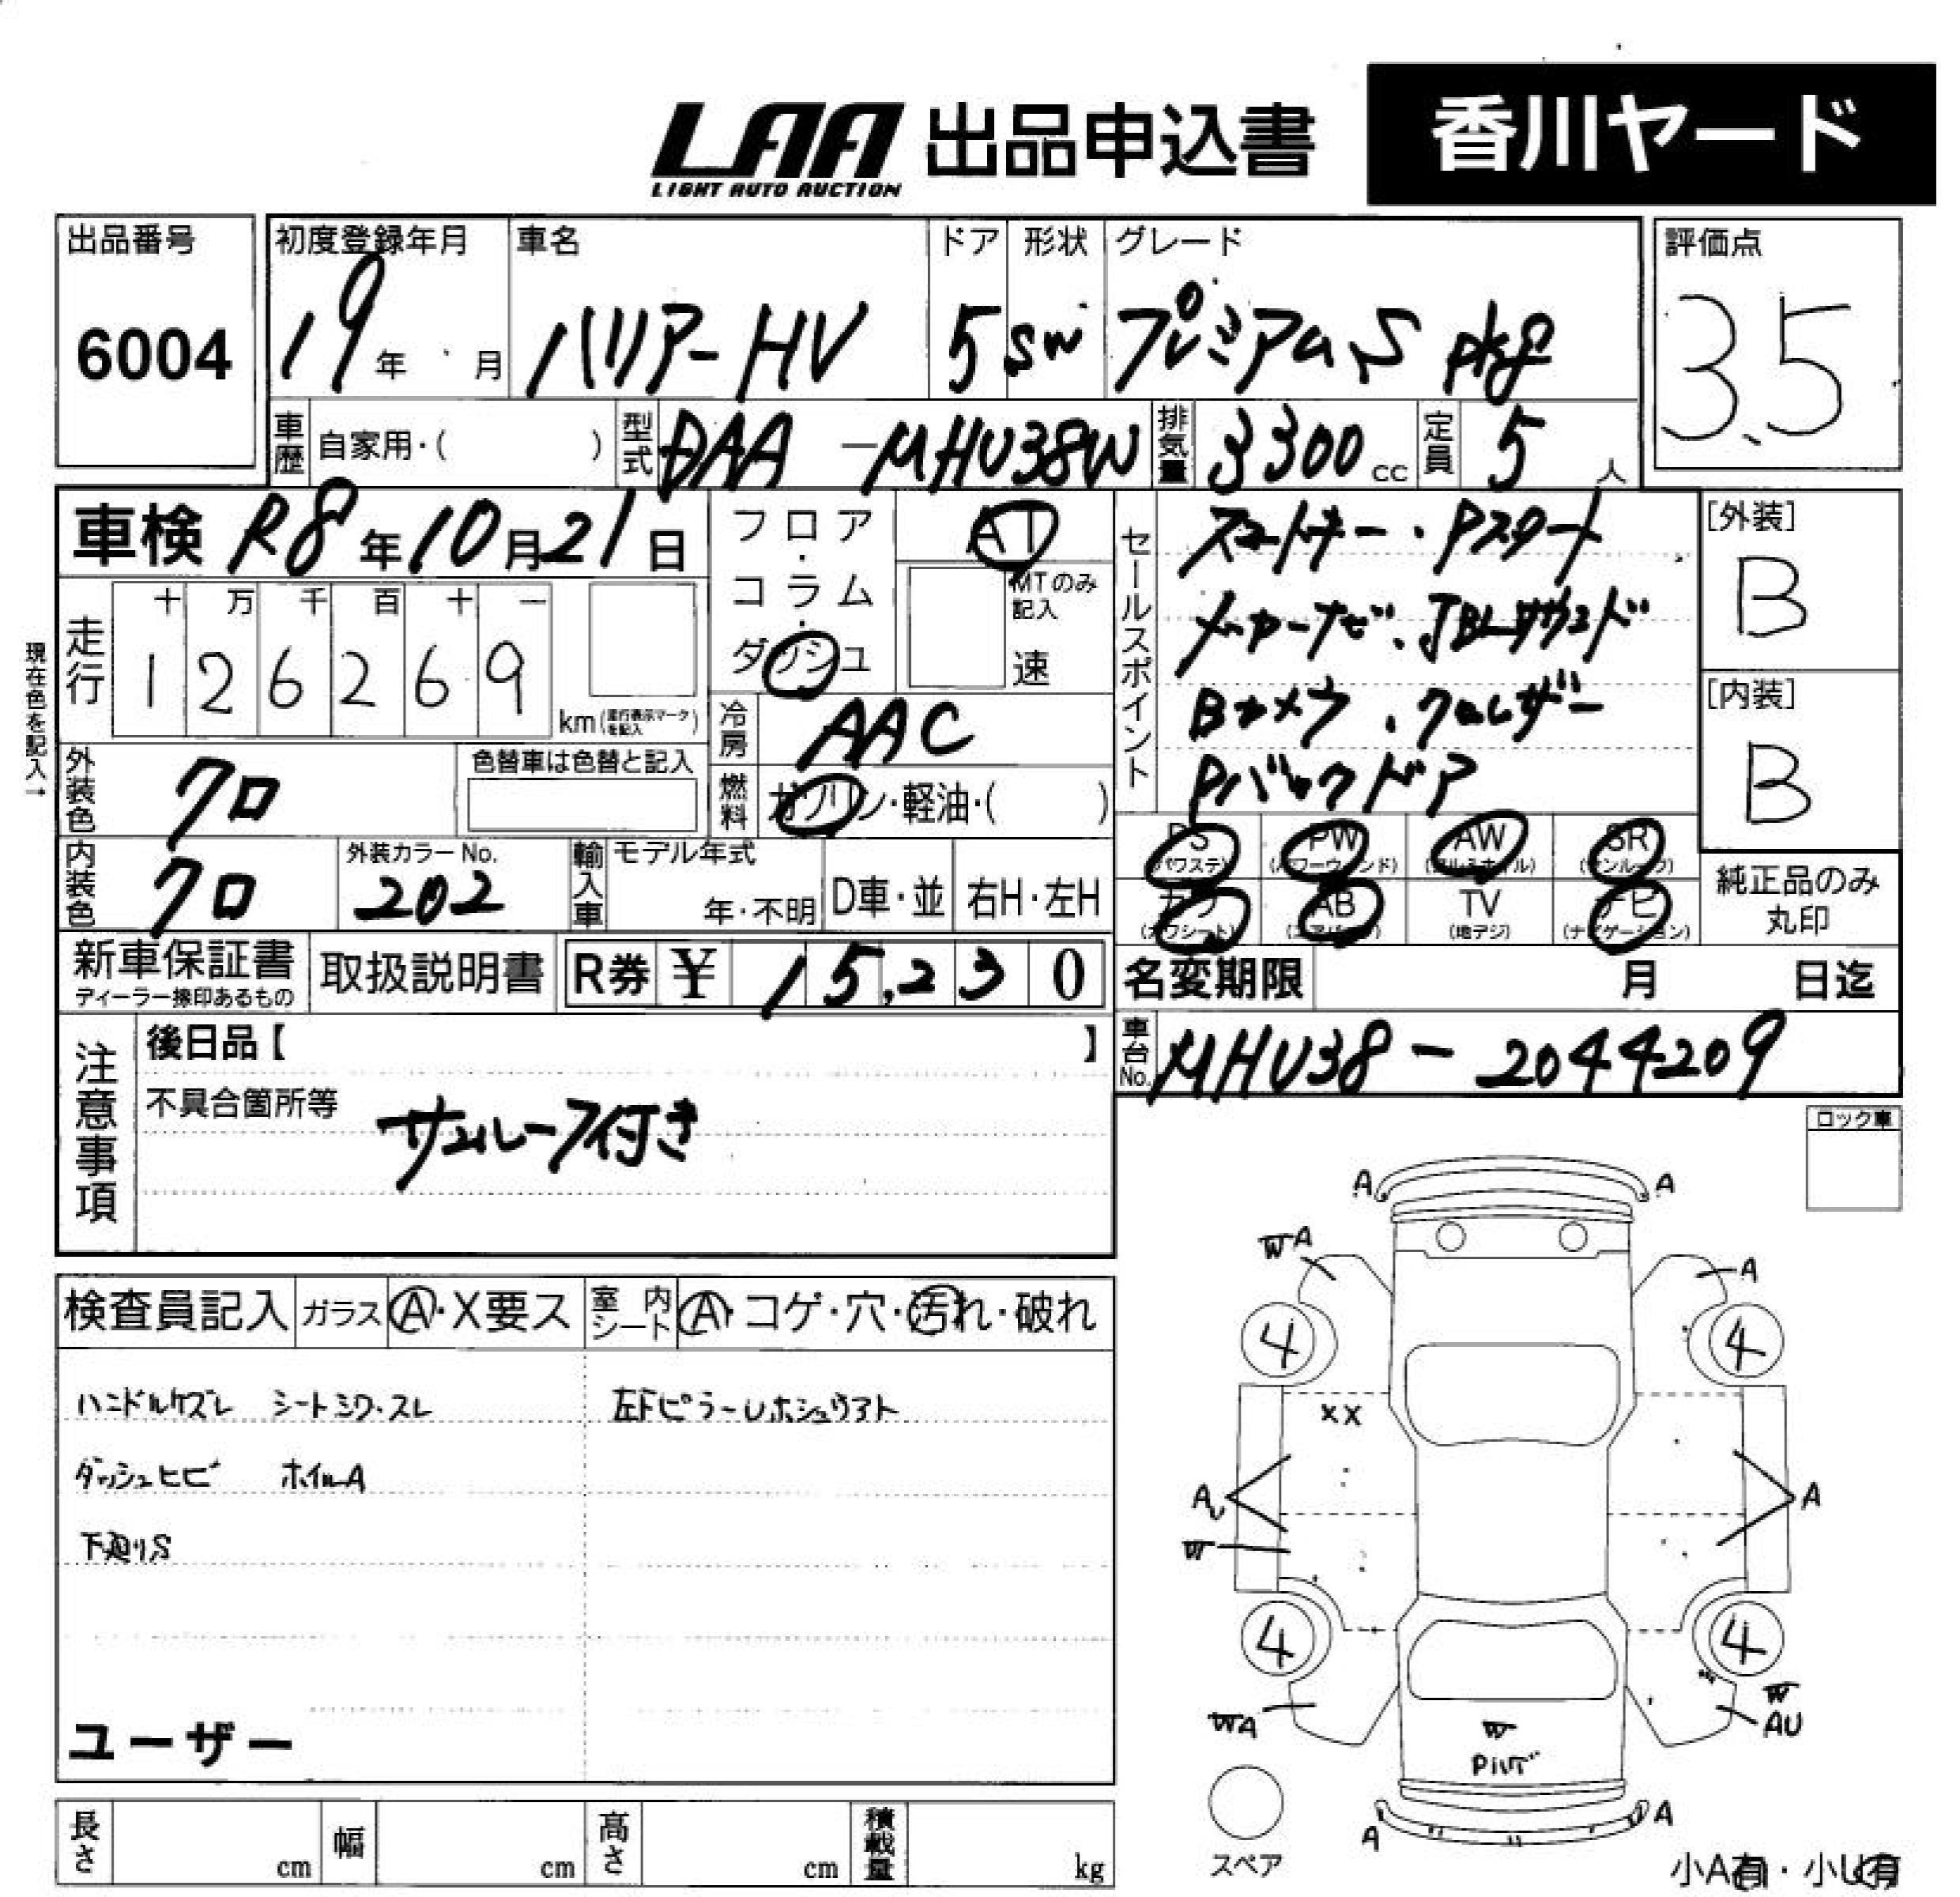 LAA 出品申込書 香川ヤード
LIGHT AUTO AUCTION
出品番号 6004
初度登録年月 19年 月
車名 ハリアーHV
ドア 5
形状 SW
グレード プレミアムS pkg
評価点 3.5
車歴 自家用・( )
型式 DAA-MHU38W
排気量 3300cc
定員 5人
車検 R8年10月21日
フロア・コラム・ダッシュ
AT
MTのみ記入
速
セールスポイント
スマートキー・Pスタート
メーカーナビ・JBLサウンド
Bカメラ・クロレザー
Pバックドア
[外装] B
[内装] B
現在色を記入→
走行 十万千百十一
126269
km(走行表示マークを記入)
冷房 AAC
燃料 ガソリン・軽油・( )
外装色 クロ
色替車は色替と記入
内装色 クロ
外装カラーNo. 202
輸入車 モデル年式 年・不明
D車・並
右H・左H
PS(パワステ) PW(パワーウィンド) AW(アルミホイル) SR(サンルーフ)
カワ(カワシート) AB(エアバッグ) TV(地デジ) ナビ(ナビゲーション)
純正品のみ丸印
新車保証書
ディーラー捺印あるもの
取扱説明書
R券 ¥ 15,230
名変期限 月 日迄
車台No. MHU38-2044209
注意事項
後日品【 】
不具合箇所等
サンルーフ付き
ロック車
検査員記入
ガラス A・X要ス
室内シート A・コゲ・穴・汚れ・破れ
ハンドルケズレ シートシワ・スレ
左Fピラーレホシュウアト
ダッシュヒビ ホイルA
下廻りS
ユーザー
A A
WA A
4 4
XX
A A
W
4 4
WA W
AU
W
Pハゲ
A A
スペア
小A有・小U有
長さ cm
幅 cm
高さ cm
積載量 kg